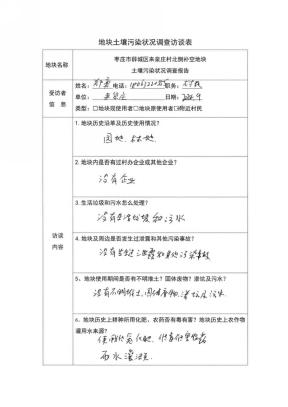 地块土壤污染状况调查访谈表
地块名称
枣庄市薛城区来泉庄村北侧补空地块
土壤污染状况调查报告
受访者
信 息
姓名: 电话: 职务:
单位: 日期:
类型: □地块现使用者 □地块原使用者 附近村民
访谈
内容
1. 地块历史沿革及历史使用情况?
园地、林地
2. 地块内是否有过村办企业或其他企业?
没有企业
3. 生活垃圾和污水怎么处理?
没有生活垃圾和污水
4. 地块及周边是否发生过泄露和其他污染事故?
没有发生过泄露和其他污染事故
5、地块使用期间是否有不明堆土? 固体废物? 渗坑及污水?
没有不明堆土、固体废物、渗坑及污水
6. 地块历史上耕种所用化肥、农药否有毒有害? 地块历史上农作物
灌用水来源?
使用
雨水灌溉